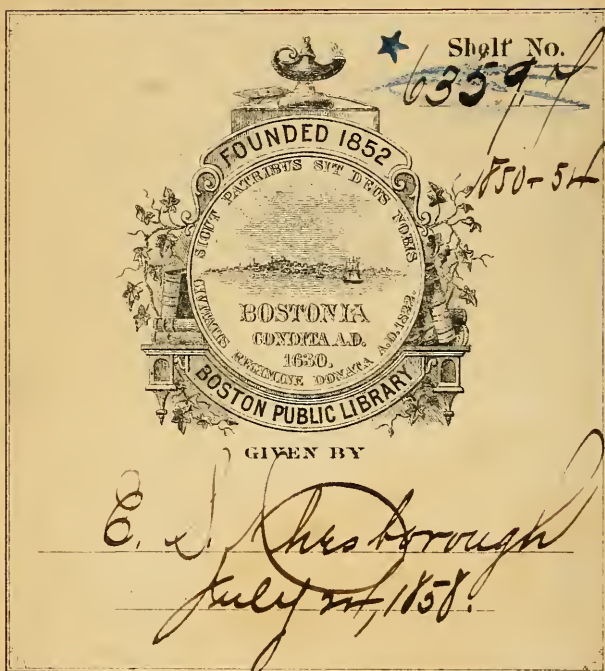 Shelf No.
6359.7
1850-54
FOUNDED 1852
SICUT PATRIBUS SIT DEUS NOBIS
BOSTONIA
CONDITA A.D.
1630.
CIVITATIS REGIMINE DONATA A.D. 1822.
BOSTON PUBLIC LIBRARY
GIVEN BY
E. S. Chesborough
July 1858.